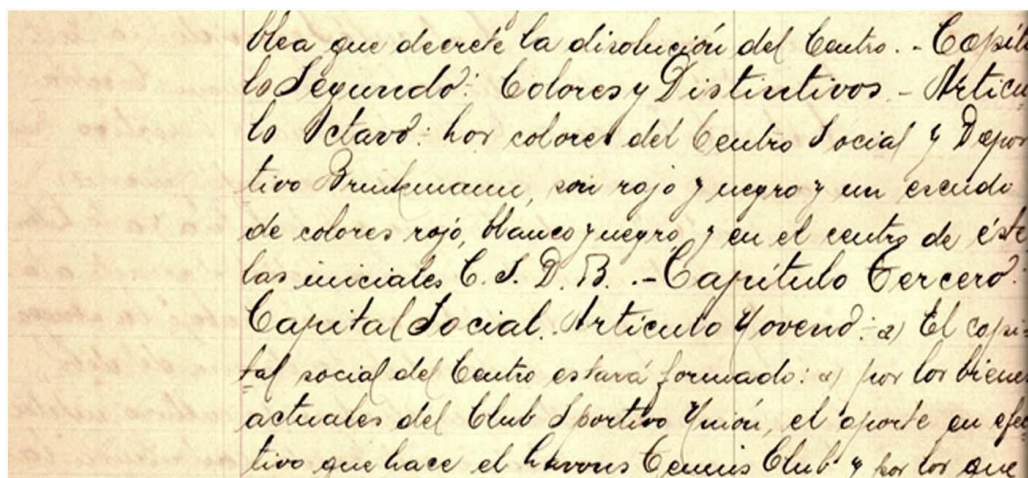 blea que decrete la disolución del Centro. - Capítu
lo Segundo: Colores y Distintivos - Artícu
lo Octavo: Los colores del Centro Social y Depor
tivo Brinkmann, son rojo y negro y un escudo
de colores rojo, blanco y negro, y en el centro de éste
las iniciales C. S. D. B. .- Capítulo Tercero:
Capital Social. Artículo Noveno: a) El capi-
tal social del Centro estará formado: a) por los bienes
actuales del Club Sportivo Unión, el aporte en efec
tivo que hace el Tennis Club y por los que